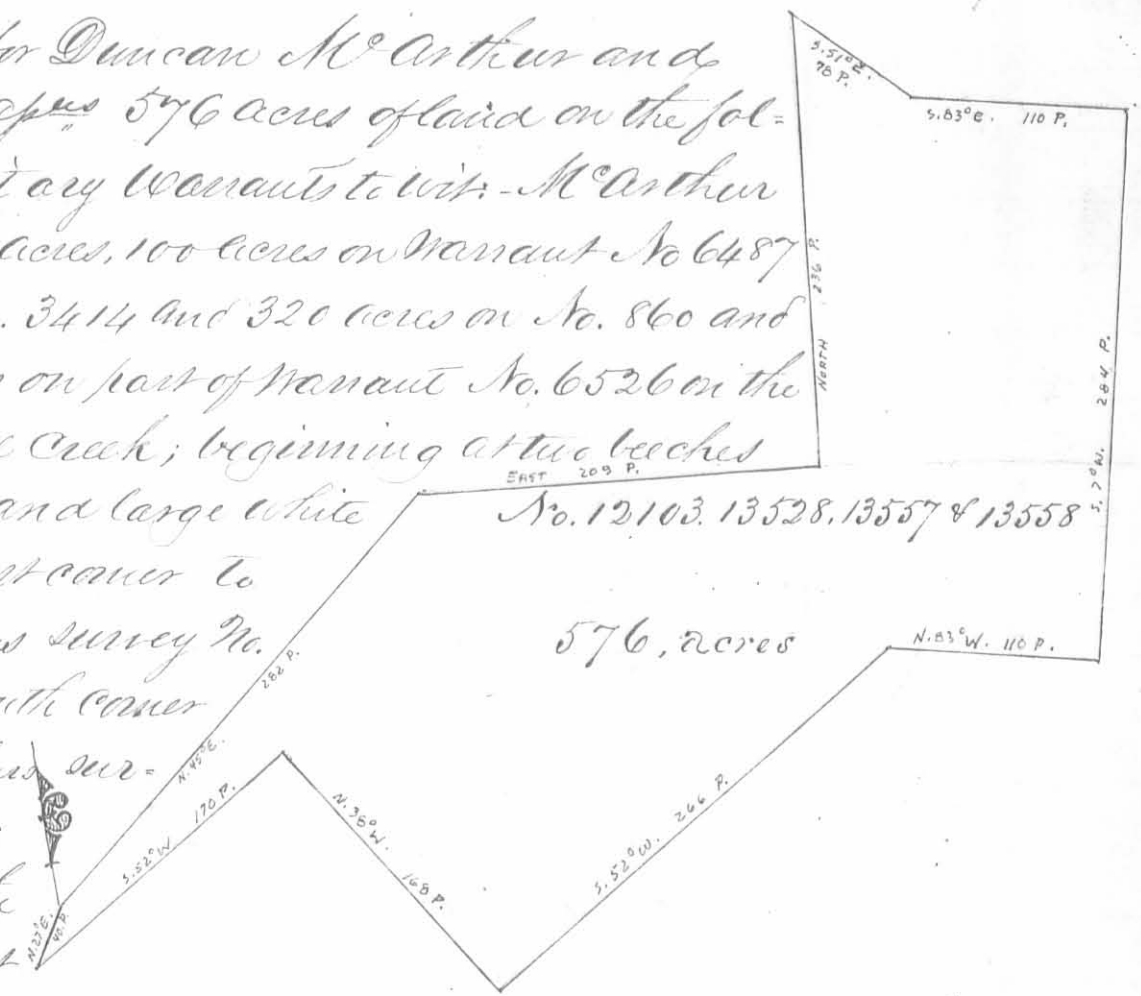 for Duncan McArthur and
576 acres of land on the fol=
tary Warrants to wit:- McArthur
acres, 100 acres on Warrant No 6487
. 3414 and 320 acres on No. 860 and
on part of Warrant No. 6526 on the
Creek; beginning at two beeches
and large white
st corner to
s survey No.
uth corner
sur=
S.51°E.
78 P.
S.83°E. 110 P.
NORTH 236 P.
S.7°W. 284 P.
EAST 209 P.
No. 12103. 13528. 13557 & 13558
576, acres
N.83°W. 110 P.
N.45°E. 282 P.
S.52°W. 170 P.
N.38°W. 168 P.
S.52°W. 266 P.
N.27°E.
40 P.